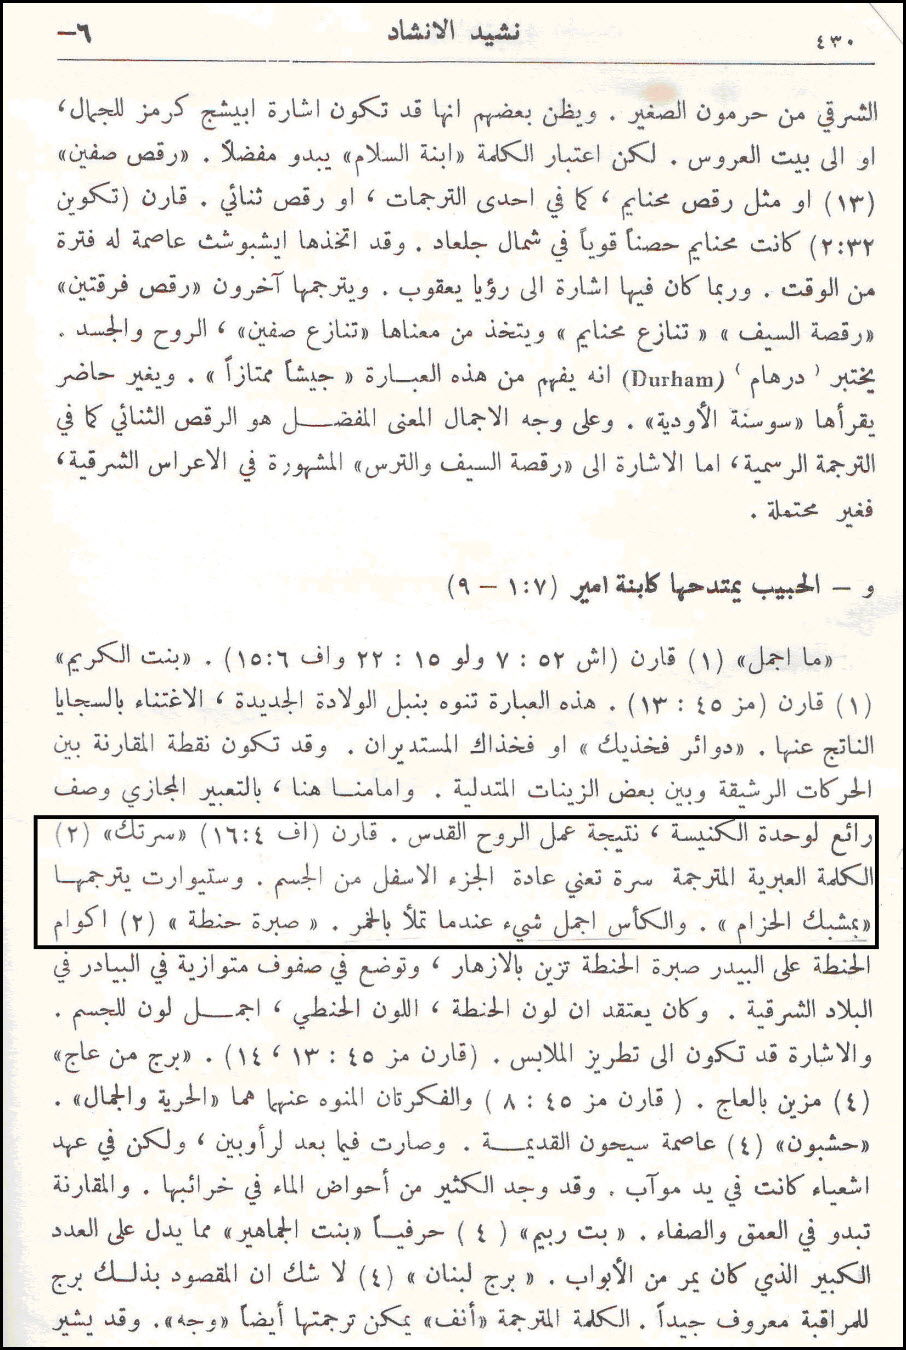 ٤٣٠ نشيد الانشاد ٦–
الشرقي من حرمون الصغير . ويظن بعضهم انها قد تكون اشارة ابيشج كرمز للجمال ،
او الى بيت العروس . لكن اعتبار الكلمة «ابنة السلام» يبدو مفضلاً . «رقص صفين»
(١٣) او مثل رقص محنايم ، كما في احدى الترجمات ، او رقص ثنائي . قارن (تكوين
٢:٣٢) كانت محنايم حصناً قوياً في شمال جلعاد . وقد اتخذها ايشبوشث عاصمة له فترة
من الوقت . وربما كان فيها اشارة الى رؤيا يعقوب . ويترجمها آخرون «رقص فرقتين»
«رقصة السيف » « تنازع محنايم » ويتخذ من معناها «تنازع صفين» ، الروح والجسد .
يختبر ‘ درهام ’ (Durham) انه يفهم من هذه العبـارة « جيشاً ممتازاً » . ويغير حاضر
يقرأها «سوسنة الأودية» . وعلى وجه الاجمال المعنى المفضـــل هو الرقص الثنائي كما في
الترجمة الرسمية ، اما الاشارة الى «رقصة السيف والترس» المشهورة في الاعراس الشرقية ،
فغير محتملة .
و – الحبيب يمتدحها كابنة امير (١:٧ – ٩)
«ما اجمل» (١) قارن (اش ٥٢ : ٧ ولو ١٥ : ٢٢ واف ١٥:٦) . «بنت الكريم»
(١) قارن (مز ٤٥ : ١٣) . هذه العبارة تنوه بنبل الولادة الجديدة ، الاغتناء بالسجايا
الناتج عنها . «دوائر فخذيك » او فخذاك المستديران . وقد تكون نقطة المقارنة بين
الحركات الرشيقة وبين بعض الزينات المتدلية . وامامنـا هنا ، بالتعبير المجازي وصف
رائع لوحدة الكنيسة ، نتيجة عمل الروح القدس . قارن (اف ١٦:٤) «سرتك» (٢)
الكلمة العبرية المترجمة سرة تعني عادة الجزء الاسفل من الجسم . وستيوارت يترجمهـا
«بمشبك الحزام » . والكأس اجمل شيء عندما تملأ بالخمر . « صبرة حنطة » (٢) اكوام
الحنطة على البيدر صبرة الحنطة تزين بالازهار ، وتوضع في صفوف متوازية في البيادر في
البلاد الشرقية . وكان يعتقد ان لون الحنطة ، اللون الحنطي ، اجمــل لون للجسم .
والاشارة قد تكون الى تطريز الملابس . (قارن مز ٤٥ : ١٣ ، ١٤) . «برج من عاج»
(٤) مزين بالعاج . ( قارن مز ٤٥ : ٨ ) والفكرتان المنوه عنهما هما «الحرية والجمال» .
«حشبون» (٤) عاصمة سيحون القديمـــة . وصارت فيما بعد لرأوبين ، ولكن في عهد
اشعياء كانت في يد موآب . وقد وجد الكثير من أحواض الماء في خرائبها . والمقارنة
تبدو في العمق والصفاء . « بت ربيم» ( ٤ ) حرفيـاً «بنت الجماهير» مما يدل على العدد
الكبير الذي كان يمر من الأبواب . « برج لبنان » (٤) لا شك ان المقصود بذلـك برج
للمراقبة معروف جيداً . الكلمة المترجمة «أنف» يمكن ترجمتها أيضاً «وجه». وقد يشير